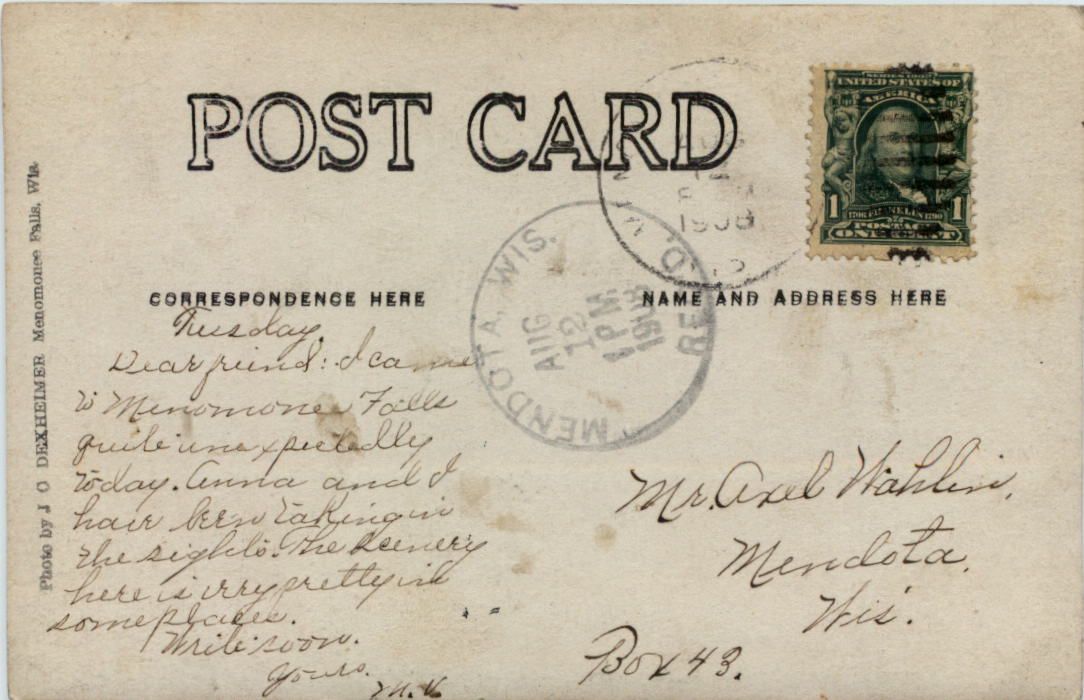 POST CARD
SERIES 1902
UNITED STATES OF
AMERICA
1 1
1706 FRANKLIN 1790
POSTAGE
ONE CENT
1908
MENDOTA, WIS.
AUG
12
1 PM
1908
REC'D.
CORRESPONDENCE HERE
NAME AND ADDRESS HERE
Photo by J O DEXHEIMER Menomonee Falls, Wis.
Tuesday.
Dear friend: I came
to Menomonee Falls
quite unexpectedly
today. Anna and I
have been taking in
the sights. The scenery
here is very pretty in
some places.
Write soon.
Yours.
M. K
Mr. Axel Wahlin,
Mendota,
Wis.
Box 43.